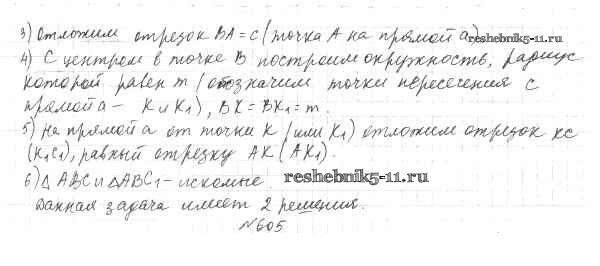 3) Отложим отрезок BA = c (точка A на прямой a).
reshebnik5-11.ru
4) С центром в точке B построим окружность, радиус
которой равен m (обозначим точки пересечения с
прямой a - K и K₁), BK = BK₁ = m.
5) На прямой a от точки K (или K₁) отложим отрезок KC
(K₁C₁), равный отрезку AK (AK₁).
6) △ ABC и △ABC₁ - искомые.
reshebnik5-11.ru
Данная задача имеет 2 решения.
№605